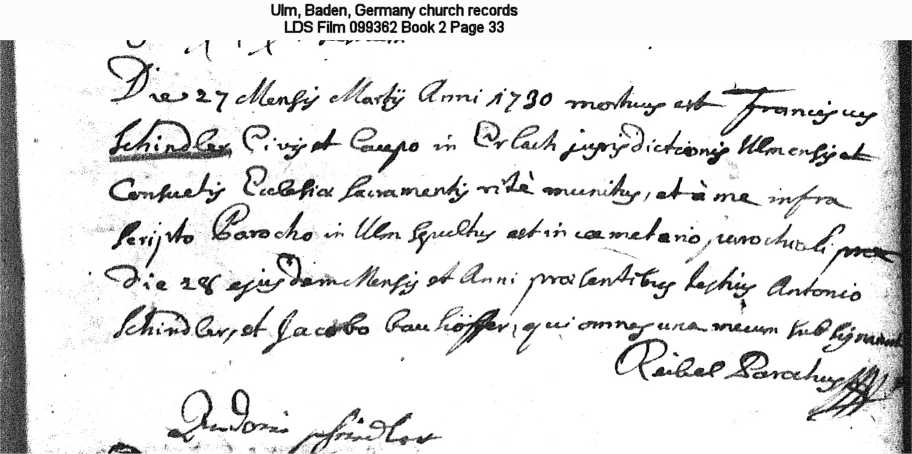 Ulm, Baden, Germany church records
LDS Film 099362 Book 2 Page 33
Die 27 Mensis Martij Anni 1730 mortuus est Franciscus
Schindler, Civis et Caupo in Erlach jurisdictionis Ulmensis et
Consuetis Ecclesiæ sacramentis ritè munitus, et à me infra
scripto Parocho in Ulm sepultus est in cœmeterio parochiali
Die 28 ejusdem Mensis et Anni præsentibus testibus Antonio
Schindler, et Jacobo qui omnes una mecum
Reibel Parochus
Schindler